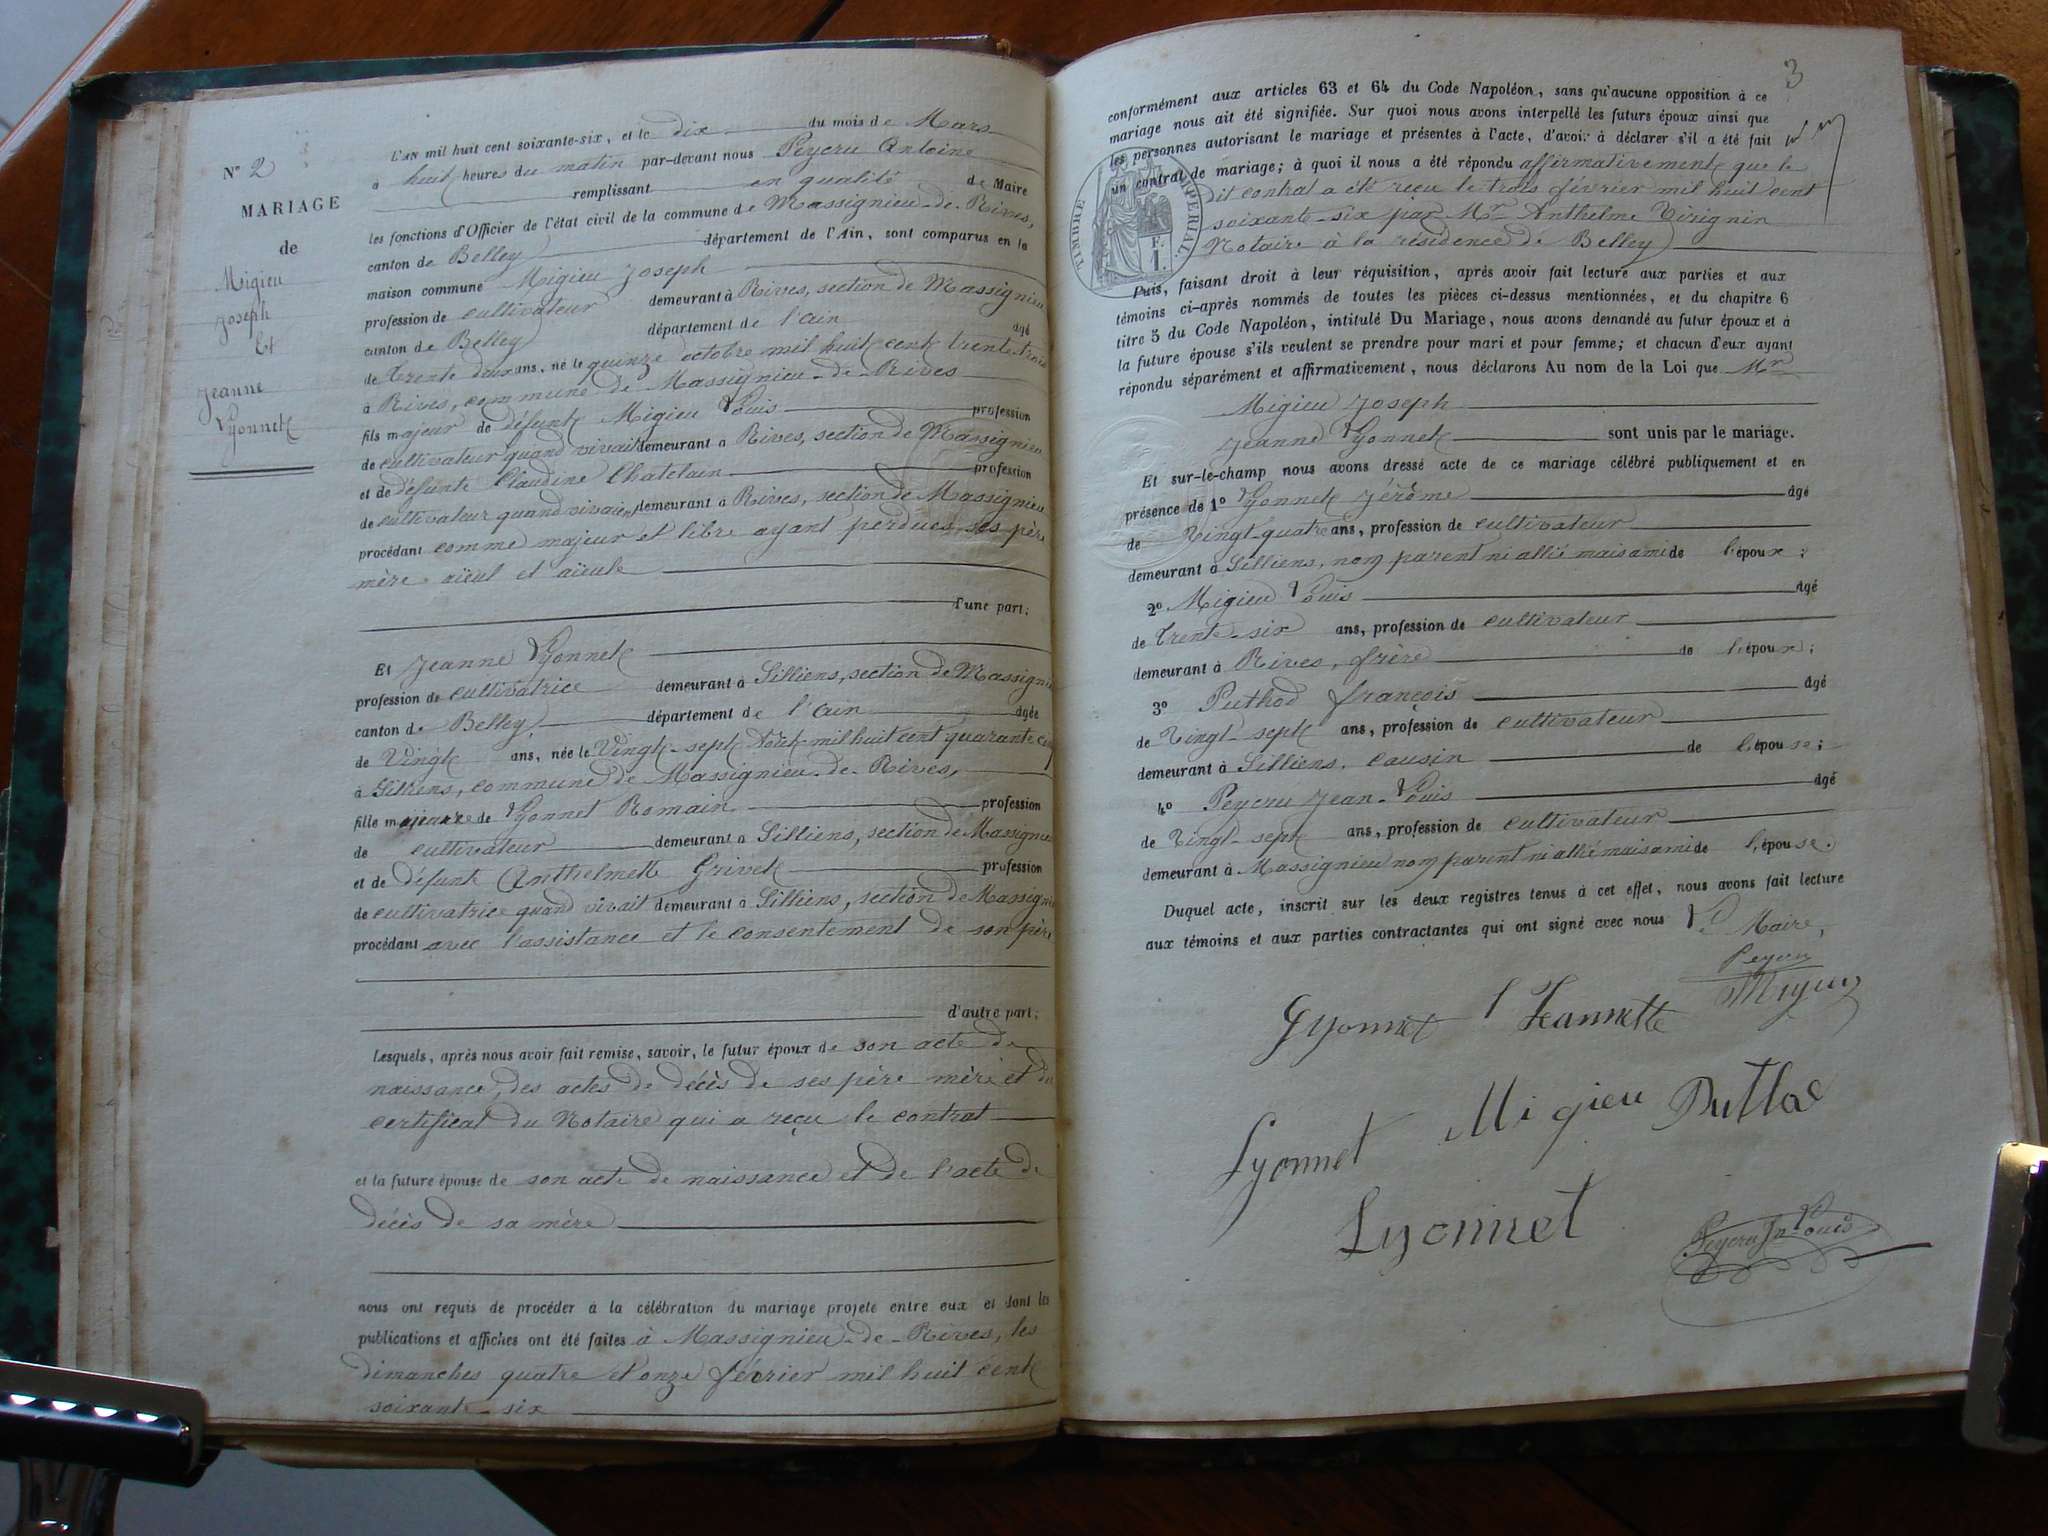 N° 2
MARIAGE
de
Migieu
Joseph
Et
Jeanne
Lyonnet
L'AN mil huit cent soixante-six, et le dix du mois de Mars
à huit heures du matin par-devant nous Peycru Antoine
remplissant en qualité de Maire
les fonctions d'Officier de l'état civil de la commune de Massignieu-de-Rives,
canton de Belley département de l'Ain, sont comparus en la
maison commune Migieu Joseph
profession de cultivateur demeurant à Rives, section de Massignieu
canton de Belley département de l'ain âgé
de Trente deux ans, né le quinze octobre mil huit cent trente trois
à Rives, commune de Massignieu-de-Rives
fils majeur de défunt Migieu Louis profession
de cultivateur quand vivait demeurant à Rives, section de Massignieu
et de défunte Claudine Chatelain profession
de cultivateur quand vivaient demeurant à Rives, section de Massignieu
procédant comme majeur et libre ayant perdues ses père
mère aïeul et aïeule
d'une part;
Et Jeanne Lyonnet
profession de cultivatrice demeurant à Silliens, section de Massignieu
canton de Belley département de l'ain âgée
de Vingt ans, née le Vingt-sept Août mil huit cent quarante cinq
à Silliens, commune de Massignieu-de-Rives,
fille majeure de Lyonnet Romain profession
de cultivateur demeurant à Silliens, section de Massignieu
et de défunte Anthelmette Grivet profession
de cultivatrice quand vivait demeurant à Silliens, section de Massignieu
procédant avec l'assistance et le consentement de son père
d'autre part;
Lesquels, après nous avoir fait remise, savoir, le futur époux de son acte de
naissance, des actes de décès de ses père mère et du
certificat du Notaire qui a reçu le contrat
et la future épouse de son acte de naissance et de l'acte de
décès de sa mère
nous ont requis de procéder à la célébration du mariage projeté entre eux et dont les
publications et affiches ont été faites à Massignieu-de-Rives, les
dimanches quatre et onze février mil huit cent
soixante-six
3
conformément aux articles 63 et 64 du Code Napoléon, sans qu'aucune opposition à ce
mariage nous ait été signifiée. Sur quoi nous avons interpellé les futurs époux ainsi que
les personnes autorisant le mariage et présentes à l'acte, d'avoir à déclarer s'il a été fait
un contrat de mariage; à quoi il nous a été répondu affirmativement que le
dit contrat a été reçu le trois février mil huit cent
soixante-six par Mr Anthelme
Notaire à la résidence de Belley
TIMBRE IMPERIAL.
F.
1.
Puis, faisant droit à leur réquisition, après avoir fait lecture aux parties et aux
témoins ci-après nommés de toutes les pièces ci-dessus mentionnées, et du chapitre 6
titre 5 du Code Napoléon, intitulé Du Mariage, nous avons demandé au futur époux et à
la future épouse s'ils veulent se prendre pour mari et pour femme; et chacun d'eux ayant
répondu séparément et affirmativement, nous déclarons Au nom de la Loi que Mr
Migieu Joseph
Jeanne Lyonnet sont unis par le mariage.
Et sur-le-champ nous avons dressé acte de ce mariage célébré publiquement et en
présence de 1° Lyonnet Jérôme âgé
de Vingt-quatre ans, profession de cultivateur
demeurant à Silliens, non parent ni allié mais ami de l'époux;
2° Migieu Louis âgé
de Trente-six ans, profession de cultivateur
demeurant à Rives, frère de l'époux;
3° Puthod françois âgé
de Vingt-sept ans, profession de cultivateur
demeurant à Silliens, cousin de l'épouse;
4° Peycru Jean-Louis âgé
de Vingt-sept ans, profession de cultivateur
demeurant à Massignieu non parent ni allié mais ami de l'épouse.
Duquel acte, inscrit sur les deux registres tenus à cet effet, nous avons fait lecture
aux témoins et aux parties contractantes qui ont signé avec nous Maire,
Peycru
Migieu
Lyonnet Jeannette
Migieu
Lyonnet
Lyonnet
Peycru Jn Louis